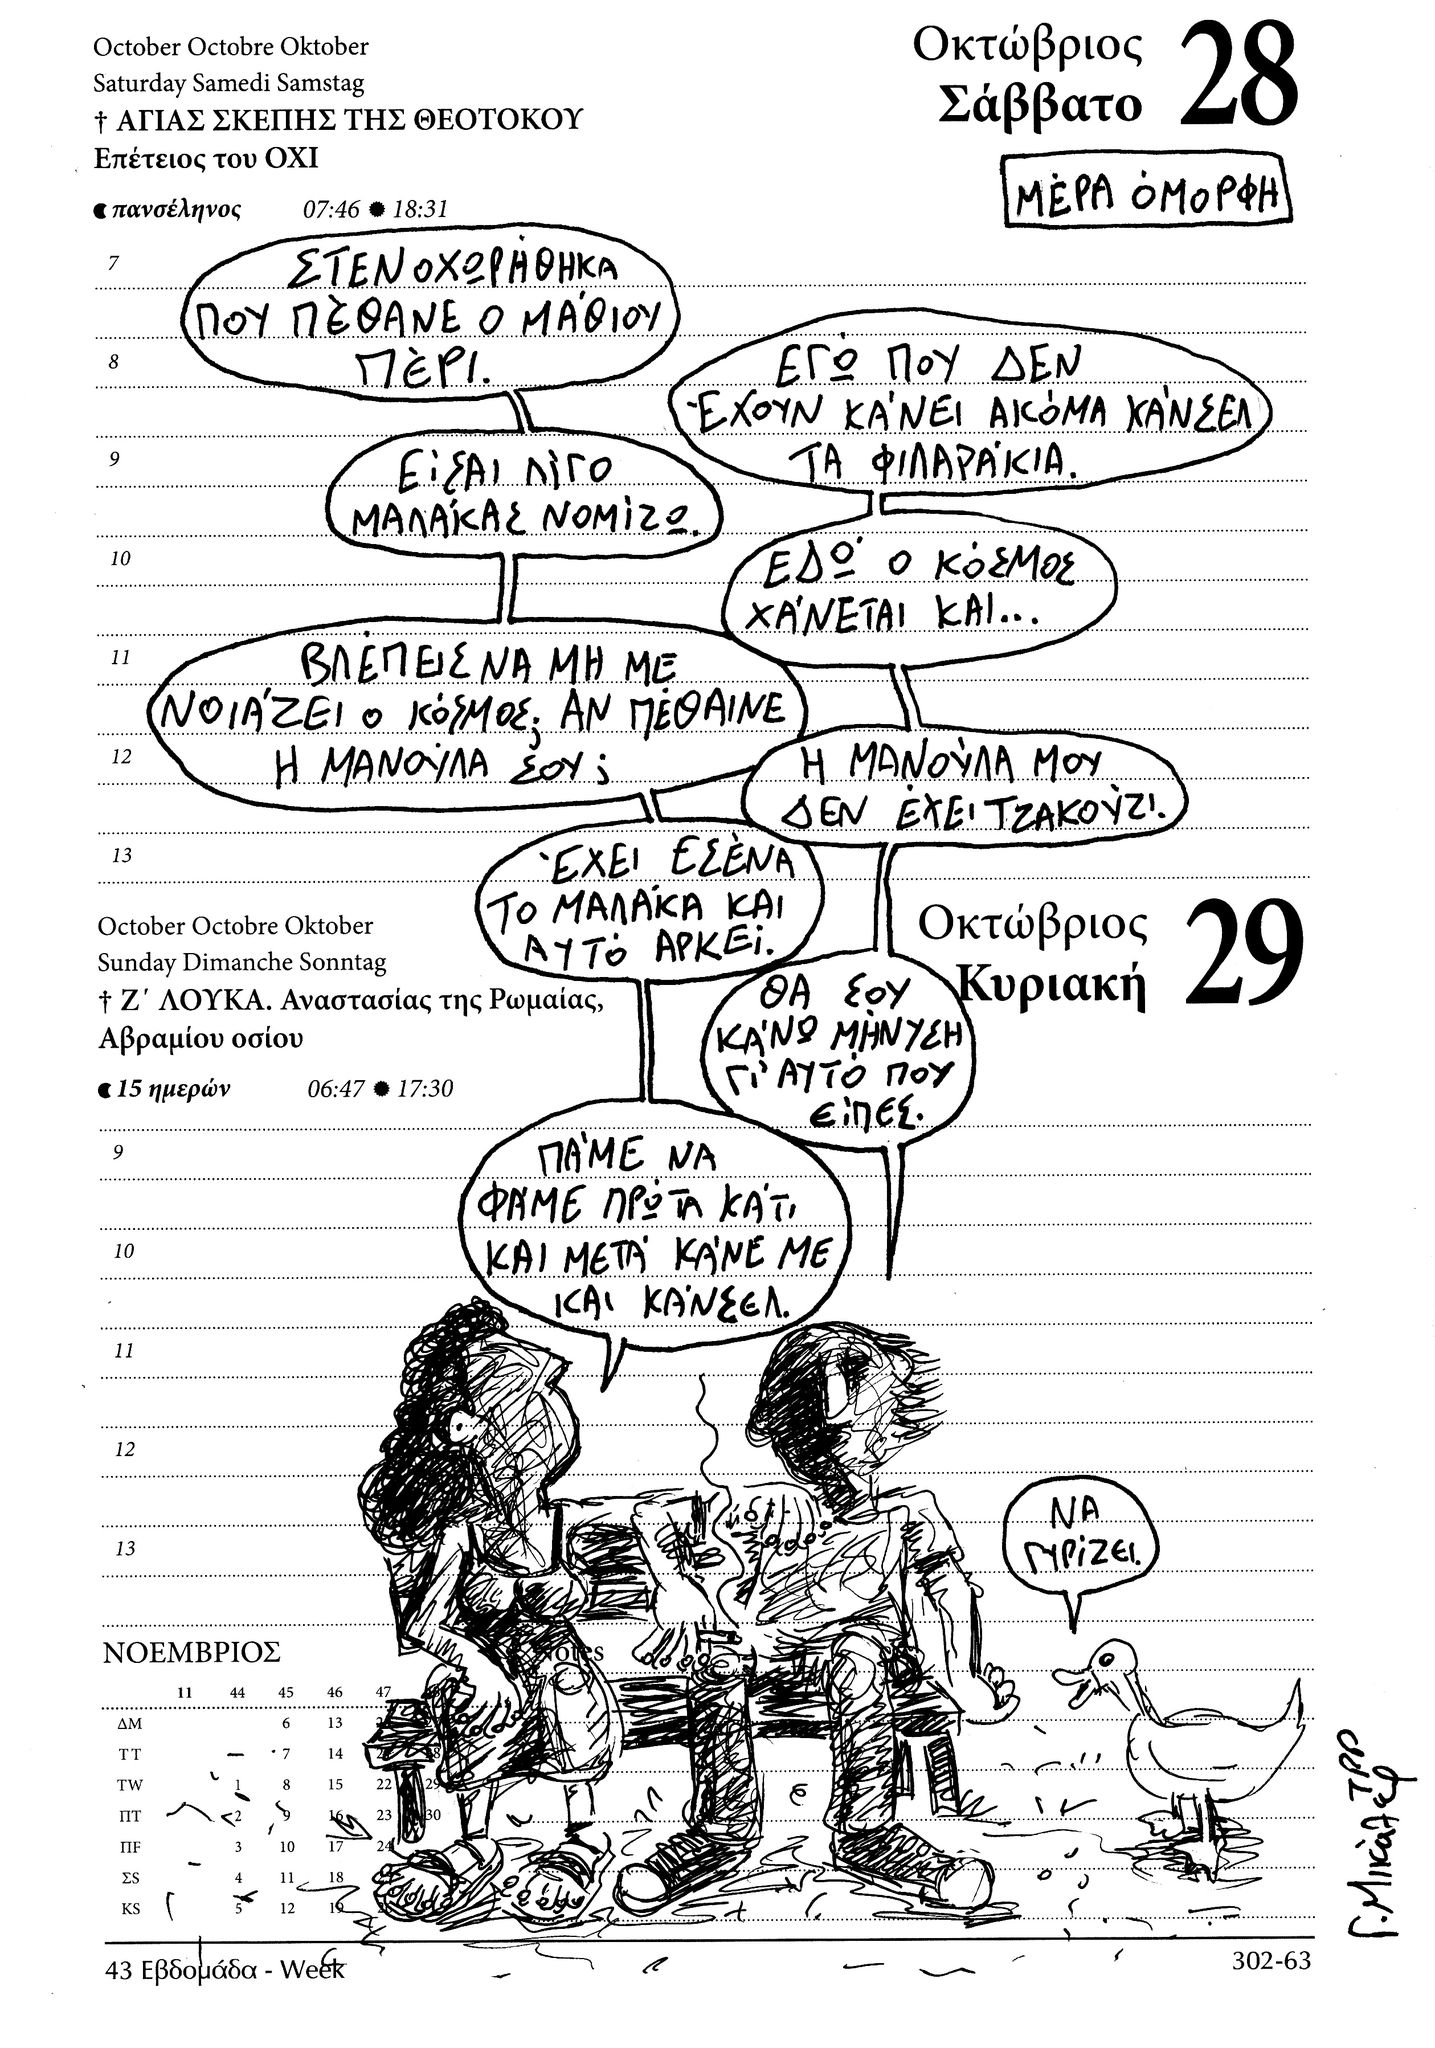 October Octobre Oktober
Saturday Samedi Samstag
† ΑΓΙΑΣ ΣΚΕΠΗΣ ΤΗΣ ΘΕΟΤΟΚΟΥ
Επέτειος του ΟΧΙ
πανσέληνος 07:46 18:31
Οκτώβριος
Σάββατο
28
ΜΕΡΑ ΌΜΟΡΦΗ
7
8
9
10
11
12
13
ΣΤΕΝΟΧΩΡΉΘΗΚΑ
ΠΟΥ ΠΈΘΑΝΕ Ο ΜΆΘΙΟΥ
ΠΈΡΙ.
ΕΓΏ ΠΟΥ ΔΕΝ
ΈΧΟΥΝ ΚΆΝΕΙ ΑΚΌΜΑ ΚΆΝΣΕΛ
ΤΑ ΦΙΛΑΡΆΚΙΑ.
ΕΊΣΑΙ ΛΊΓΟ
ΜΑΛΆΚΑΣ ΝΟΜΊΖΩ.
ΕΔΏ Ο ΚΌΣΜΟΣ
ΧΆΝΕΤΑΙ ΚΑΙ...
ΒΛΈΠΕΙΣ ΝΑ ΜΗ ΜΕ
ΝΟΙΆΖΕΙ Ο ΚΌΣΜΟΣ; ΑΝ ΠΈΘΑΙΝΕ
Η ΜΑΝΟΎΛΑ ΣΟΥ;
Η ΜΑΝΟΎΛΑ ΜΟΥ
ΔΕΝ ΈΧΕΙ ΤΖΑΚΟΎΖΙ.
ΈΧΕΙ ΕΣΈΝΑ
ΤΟ ΜΑΛΆΚΑ ΚΑΙ
ΑΥΤΌ ΑΡΚΕΊ.
ΘΑ ΣΟΥ
ΚΆΝΩ ΜΉΝΥΣΗ
ΓΙ' ΑΥΤΌ ΠΟΥ
ΕΊΠΕΣ.
ΠΆΜΕ ΝΑ
ΦΆΜΕ ΠΡΏΤΑ ΚΆΤΙ
ΚΑΙ ΜΕΤΆ ΚΆΝΕ ΜΕ
ΚΑΙ ΚΆΝΣΕΛ.
October Octobre Oktober
Sunday Dimanche Sonntag
† Ζ΄ ΛΟΥΚΑ. Αναστασίας της Ρωμαίας,
Αβραμίου οσίου
15 ημερών 06:47 17:30
Οκτώβριος
Κυριακή
29
9
10
11
12
13
ΝΑ
ΓΥΡΊΖΕΙ.
ΝΟΕΜΒΡΙΟΣ
11 44 45 46 47
ΔΜ 6 13
ΤΤ 7 14
ΤW 1 8 15 22 29
ΠΤ 2 9 16 23 30
ΠF 3 10 17 24
ΣS 4 11 18
KS 5 12 19
43 Εβδομάδα - Week
302-63
Γ. Μικάλεφ